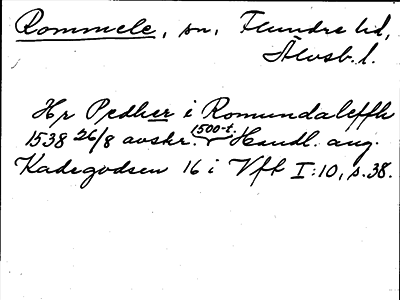 Rommele, sn, Flundre hd,
Älvsb. l.
Hr Pedher i Romundaleffh
1538 26/8 avskr. 1500-t. Handl. ang.
Kadegodsen 16 i Vft I:10, s. 38.